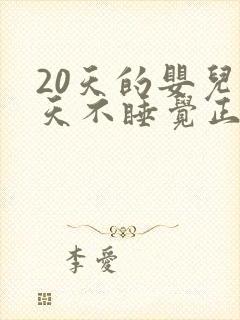 20天的嬰兒
天不睡覺正
李愛